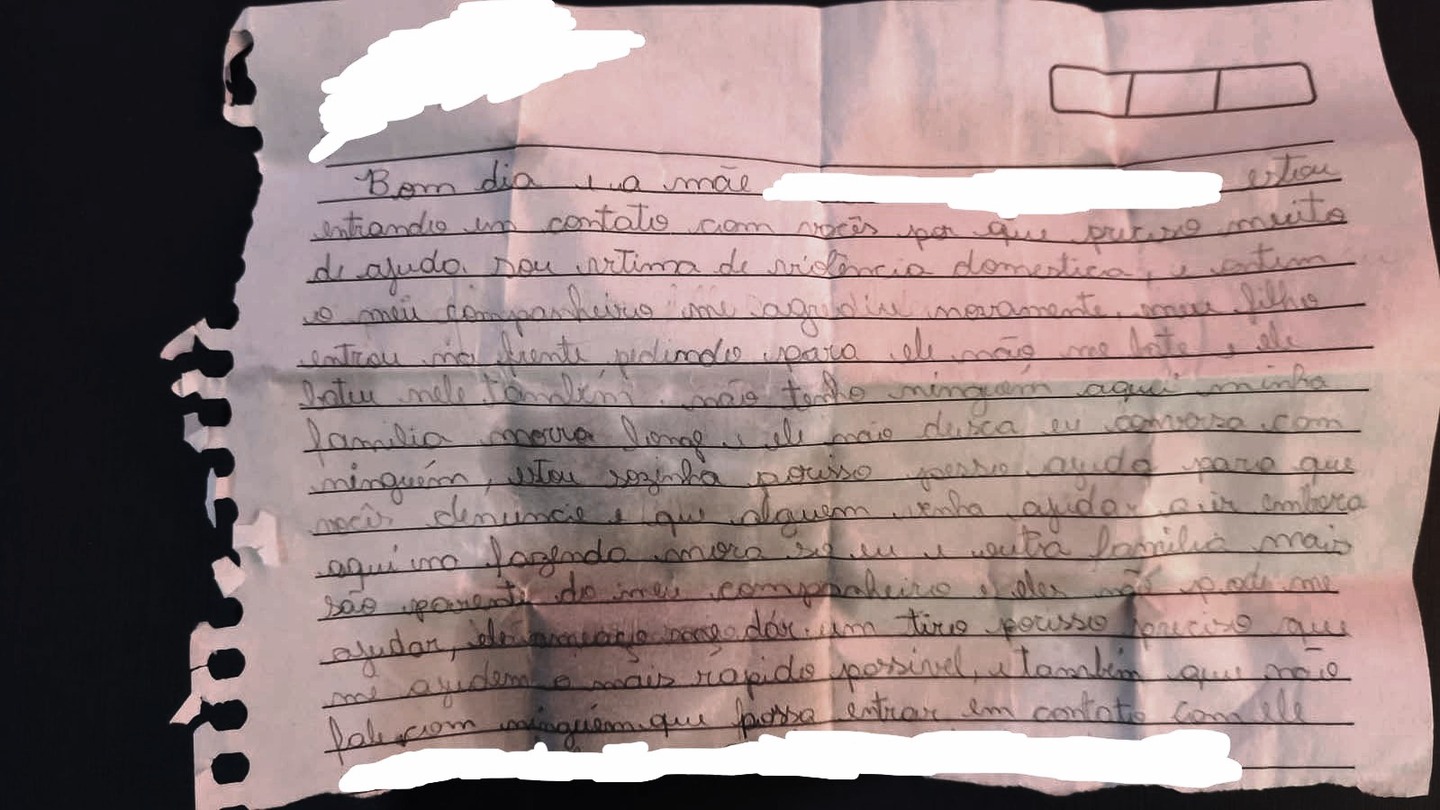 Bom dia sua mãe estou
entrando em contato com vocês por que preciso muito
de ajuda. sou vitima de violência domestica, e ontem
o meu companheiro me agrediu novamente, meu filho
entrou na frente pedindo para ele não me bate e ele
bateu nele também. não tenho ninguém aqui minha
familia morra longe e ele não deixa eu conversa com
ninguém, estou sozinha pousso pesso ajuda para que
vocês denuncie e que alguem venha ajudar a ir embora
aqui na fazenda mora so eu e outra familia mais
são parente do meu companheiro e eles não pode me
ajudar, ele dár um tiro pousso preciso que
me ajudem o mais rápido possivel, e também que não
fale com ninguém que possa entrar em contato com ele